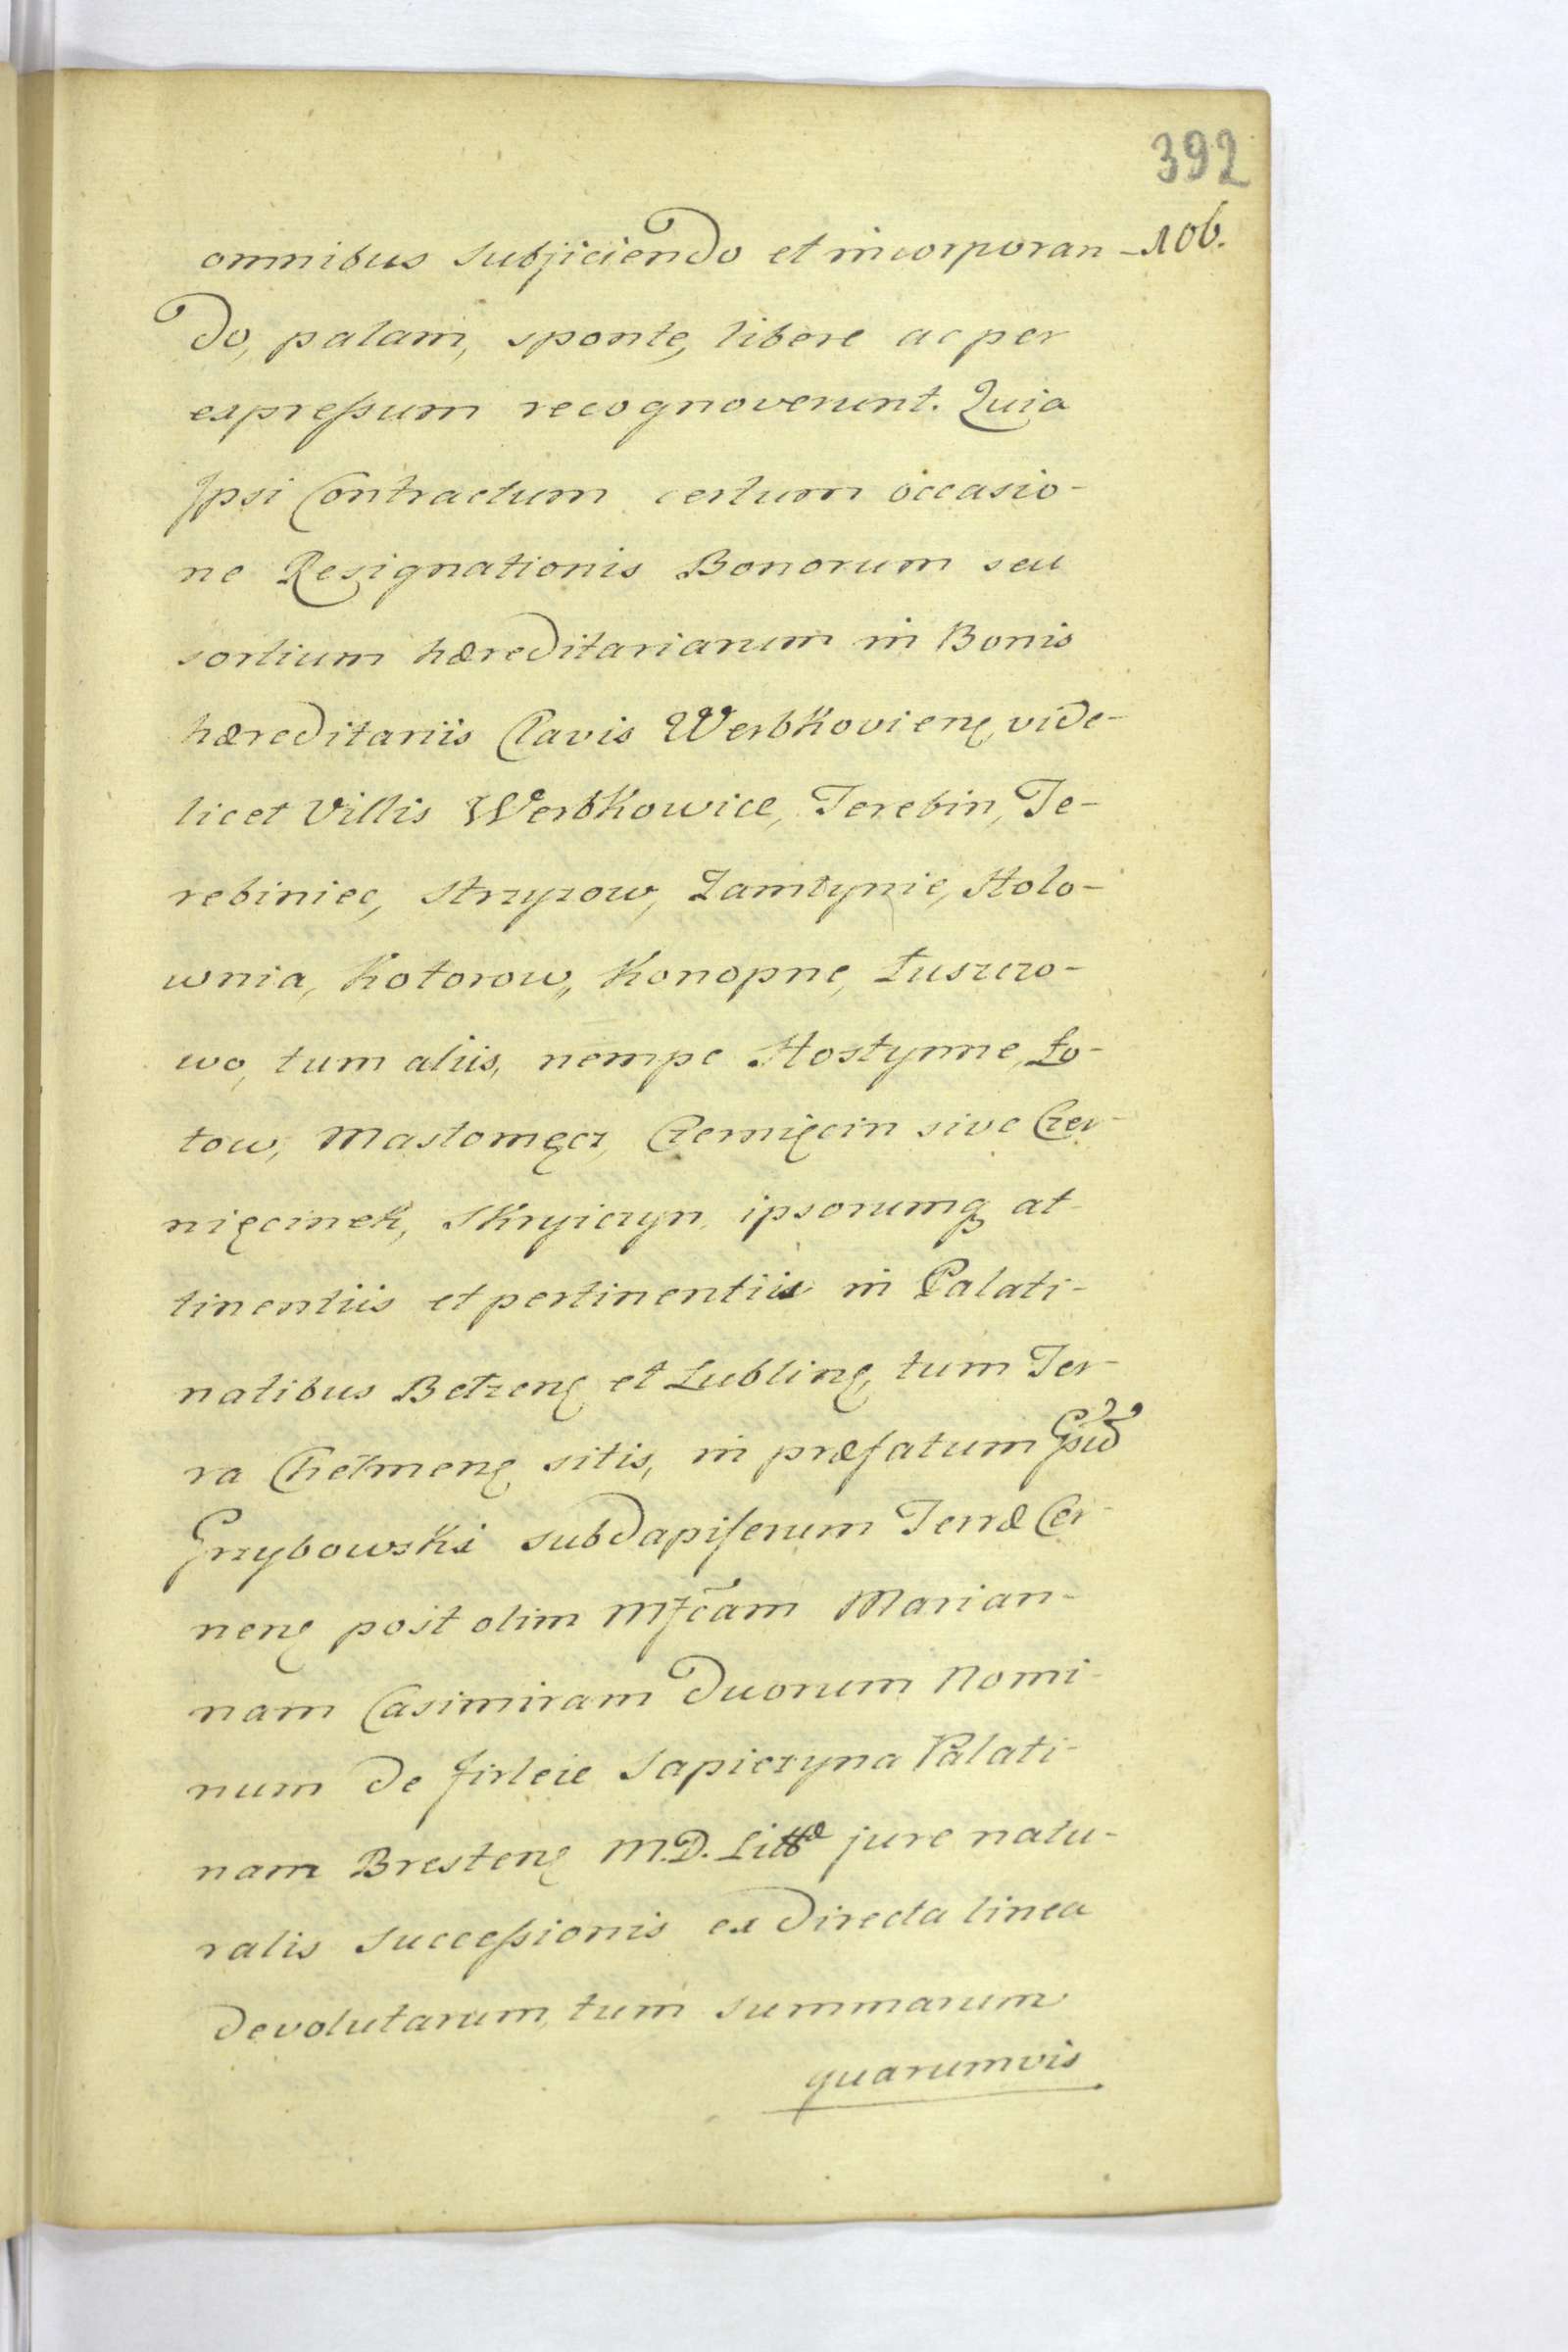 392
106.
omnibus subjiciendo et incorporan-
do, palam, sponte, libere ac per
expressum recognoverunt. Quia
Ipsi Contractum certum occasio-
ne Resignationis Bonorum seu
sortium hæreditariarum in Bonis
hæreditariis Clavis Werbkovienę vide-
licet Villis Werbkowice, Terebin, Te-
rebiniec, Strzyzow, Zamłynie, Holo-
wnia, Kotorow, Konopne, Łuszczo-
wo, tum aliis, nempe Hostynne, Ło-
tow, Masłomęcz, Czernięcin sive Czer-
nięcinek, Skryiczyn, ipsorumq at-
tinentiis et pertinentiis in Palati-
natibus Bełzenę et Lublinę, tum Ter-
ra Chełmenę sitis, in præfatum
Grzybowski subdapiferum Terræ Cer-
nenę post olim Mfcam Marian-
nam Casimiram duorum Nomi-
num de Firleie Sapiezyna Palati-
nam Brestenę M.D. Littæ jure natu-
ralis successionis ex directa linea
devolutarum, tum summarum
quarumvis